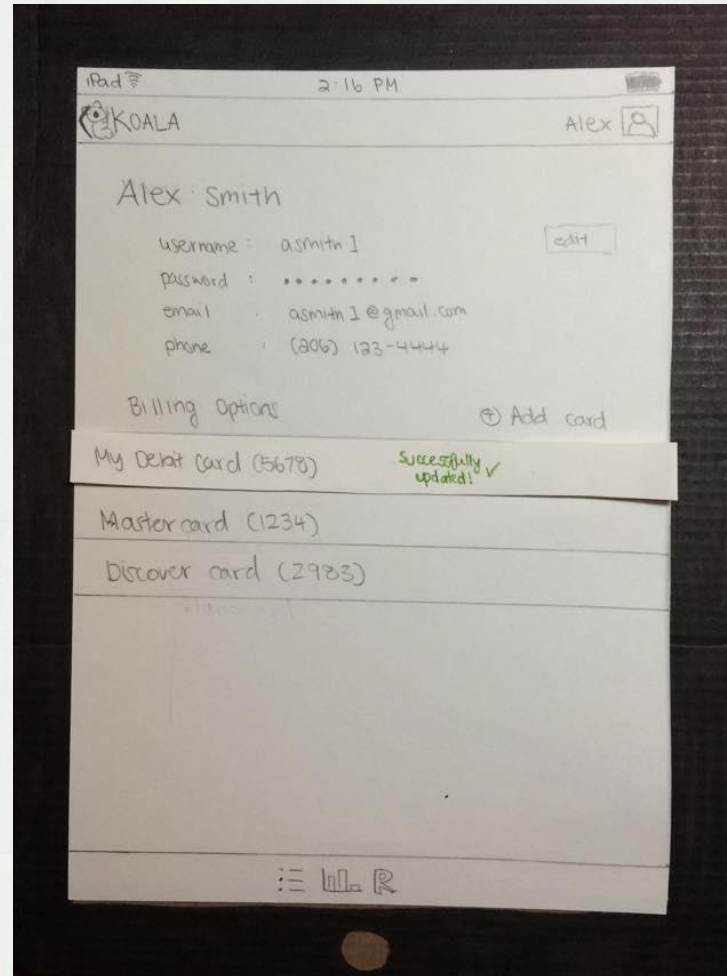 iPad 2:16 PM
KOALA Alex
Alex Smith
username : asmith1 edit
password : • • • • • • • • •
email : asmith1@gmail.com
phone : (206) 123-4444
Billing Options + Add card
My Debit Card (5678) Successfully updated! ✓
Mastercard (1234)
Discover card (2983)
R